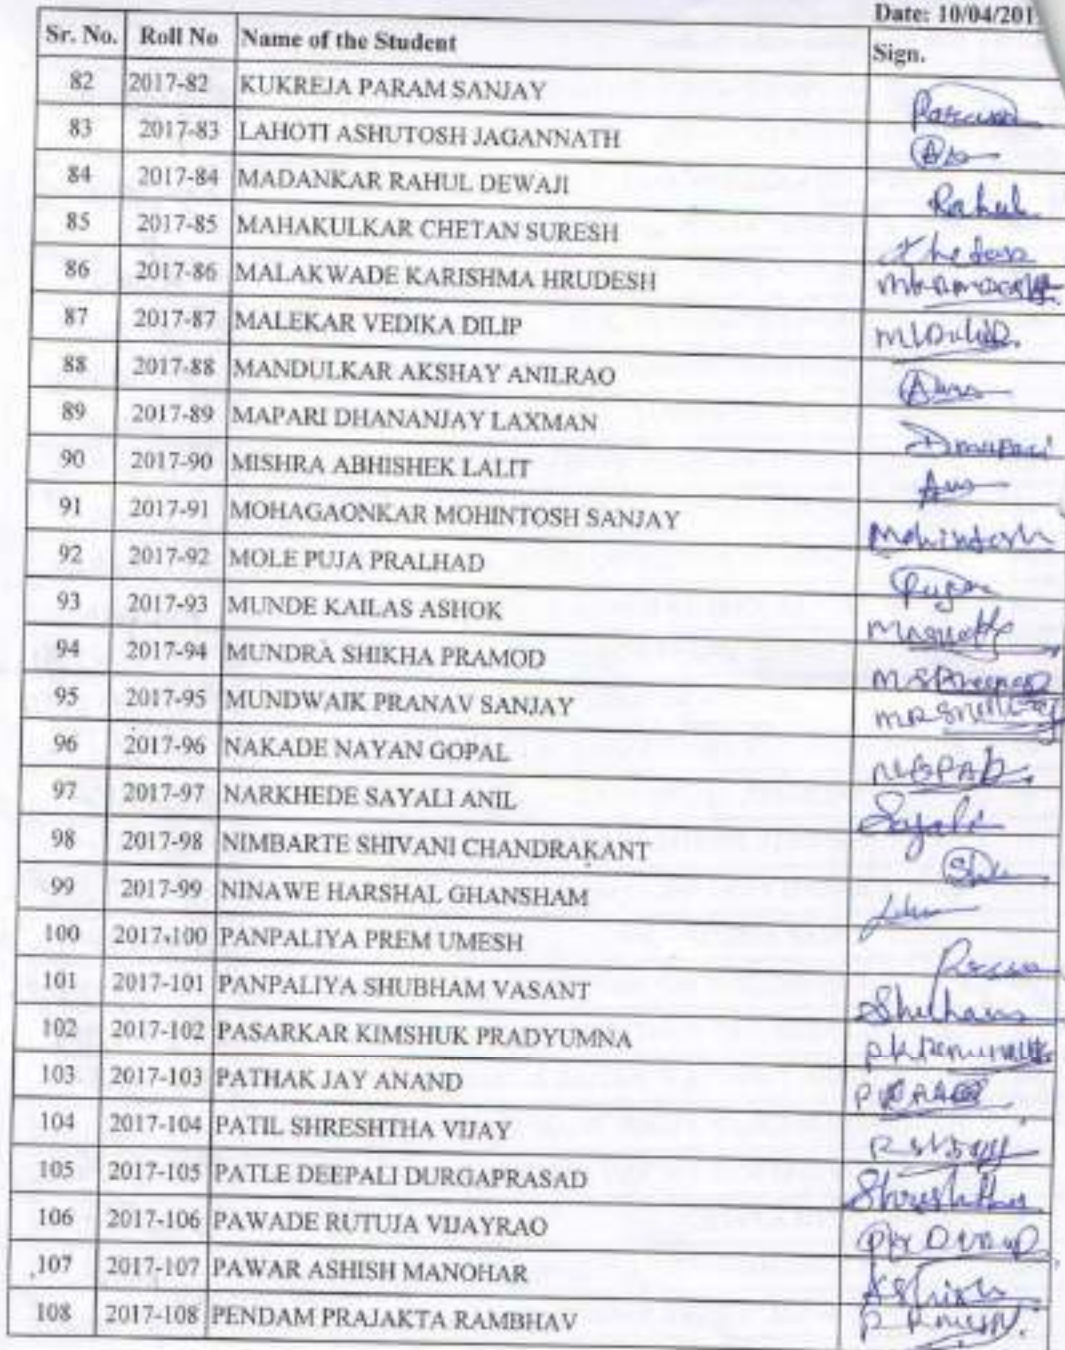 Date: 10/04/201
Sr. No. Roll No Name of the Student Sign.
82 2017-82 KUKREJA PARAM SANJAY
83 2017-83 LAHOTI ASHUTOSH JAGANNATH
84 2017-84 MADANKAR RAHUL DEWAJI Rahul
85 2017-85 MAHAKULKAR CHETAN SURESH
86 2017-86 MALAKWADE KARISHMA HRUDESH
87 2017-87 MALEKAR VEDIKA DILIP
88 2017-88 MANDULKAR AKSHAY ANILRAO
89 2017-89 MAPARI DHANANJAY LAXMAN Dmapari
90 2017-90 MISHRA ABHISHEK LALIT
91 2017-91 MOHAGAONKAR MOHINTOSH SANJAY Mohintosh
92 2017-92 MOLE PUJA PRALHAD
93 2017-93 MUNDE KAILAS ASHOK
94 2017-94 MUNDRA SHIKHA PRAMOD
95 2017-95 MUNDWAIK PRANAV SANJAY
96 2017-96 NAKADE NAYAN GOPAL
97 2017-97 NARKHEDE SAYALI ANIL Sayali
98 2017-98 NIMBARTE SHIVANI CHANDRAKANT
99 2017-99 NINAWE HARSHAL GHANSHAM
100 2017-100 PANPALIYA PREM UMESH
101 2017-101 PANPALIYA SHUBHAM VASANT Shubham
102 2017-102 PASARKAR KIMSHUK PRADYUMNA
103 2017-103 PATHAK JAY ANAND
104 2017-104 PATIL SHRESHTHA VIJAY
105 2017-105 PATLE DEEPALI DURGAPRASAD Shreshtha
106 2017-106 PAWADE RUTUJA VIJAYRAO
107 2017-107 PAWAR ASHISH MANOHAR Ashish
108 2017-108 PENDAM PRAJAKTA RAMBHAV